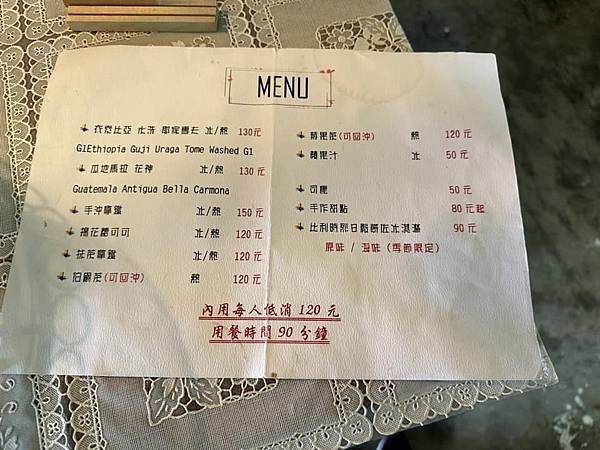 MENU
衣索比亞 水洗 冰/熱 130元
G1Ethiopia Guji Uraga Tome Washed G1
瓜地馬拉 花神 冰/熱 130元
Guatemala Antigua Bella Carmona
手沖拿鐵 冰/熱 150元
棉花糖可可 冰/熱 120元
抹茶拿鐵 冰/熱 120元
伯爵茶(可回沖) 熱 120元
蘋果茶(可回沖) 熱 120元
蘋果汁 冰 50元
可樂 50元
手作甜點 80元起
比利時烈日鬆餅佐冰淇淋 90元
原味 / (季節限定)
內用每人低消 120 元
用餐時間 90 分鐘